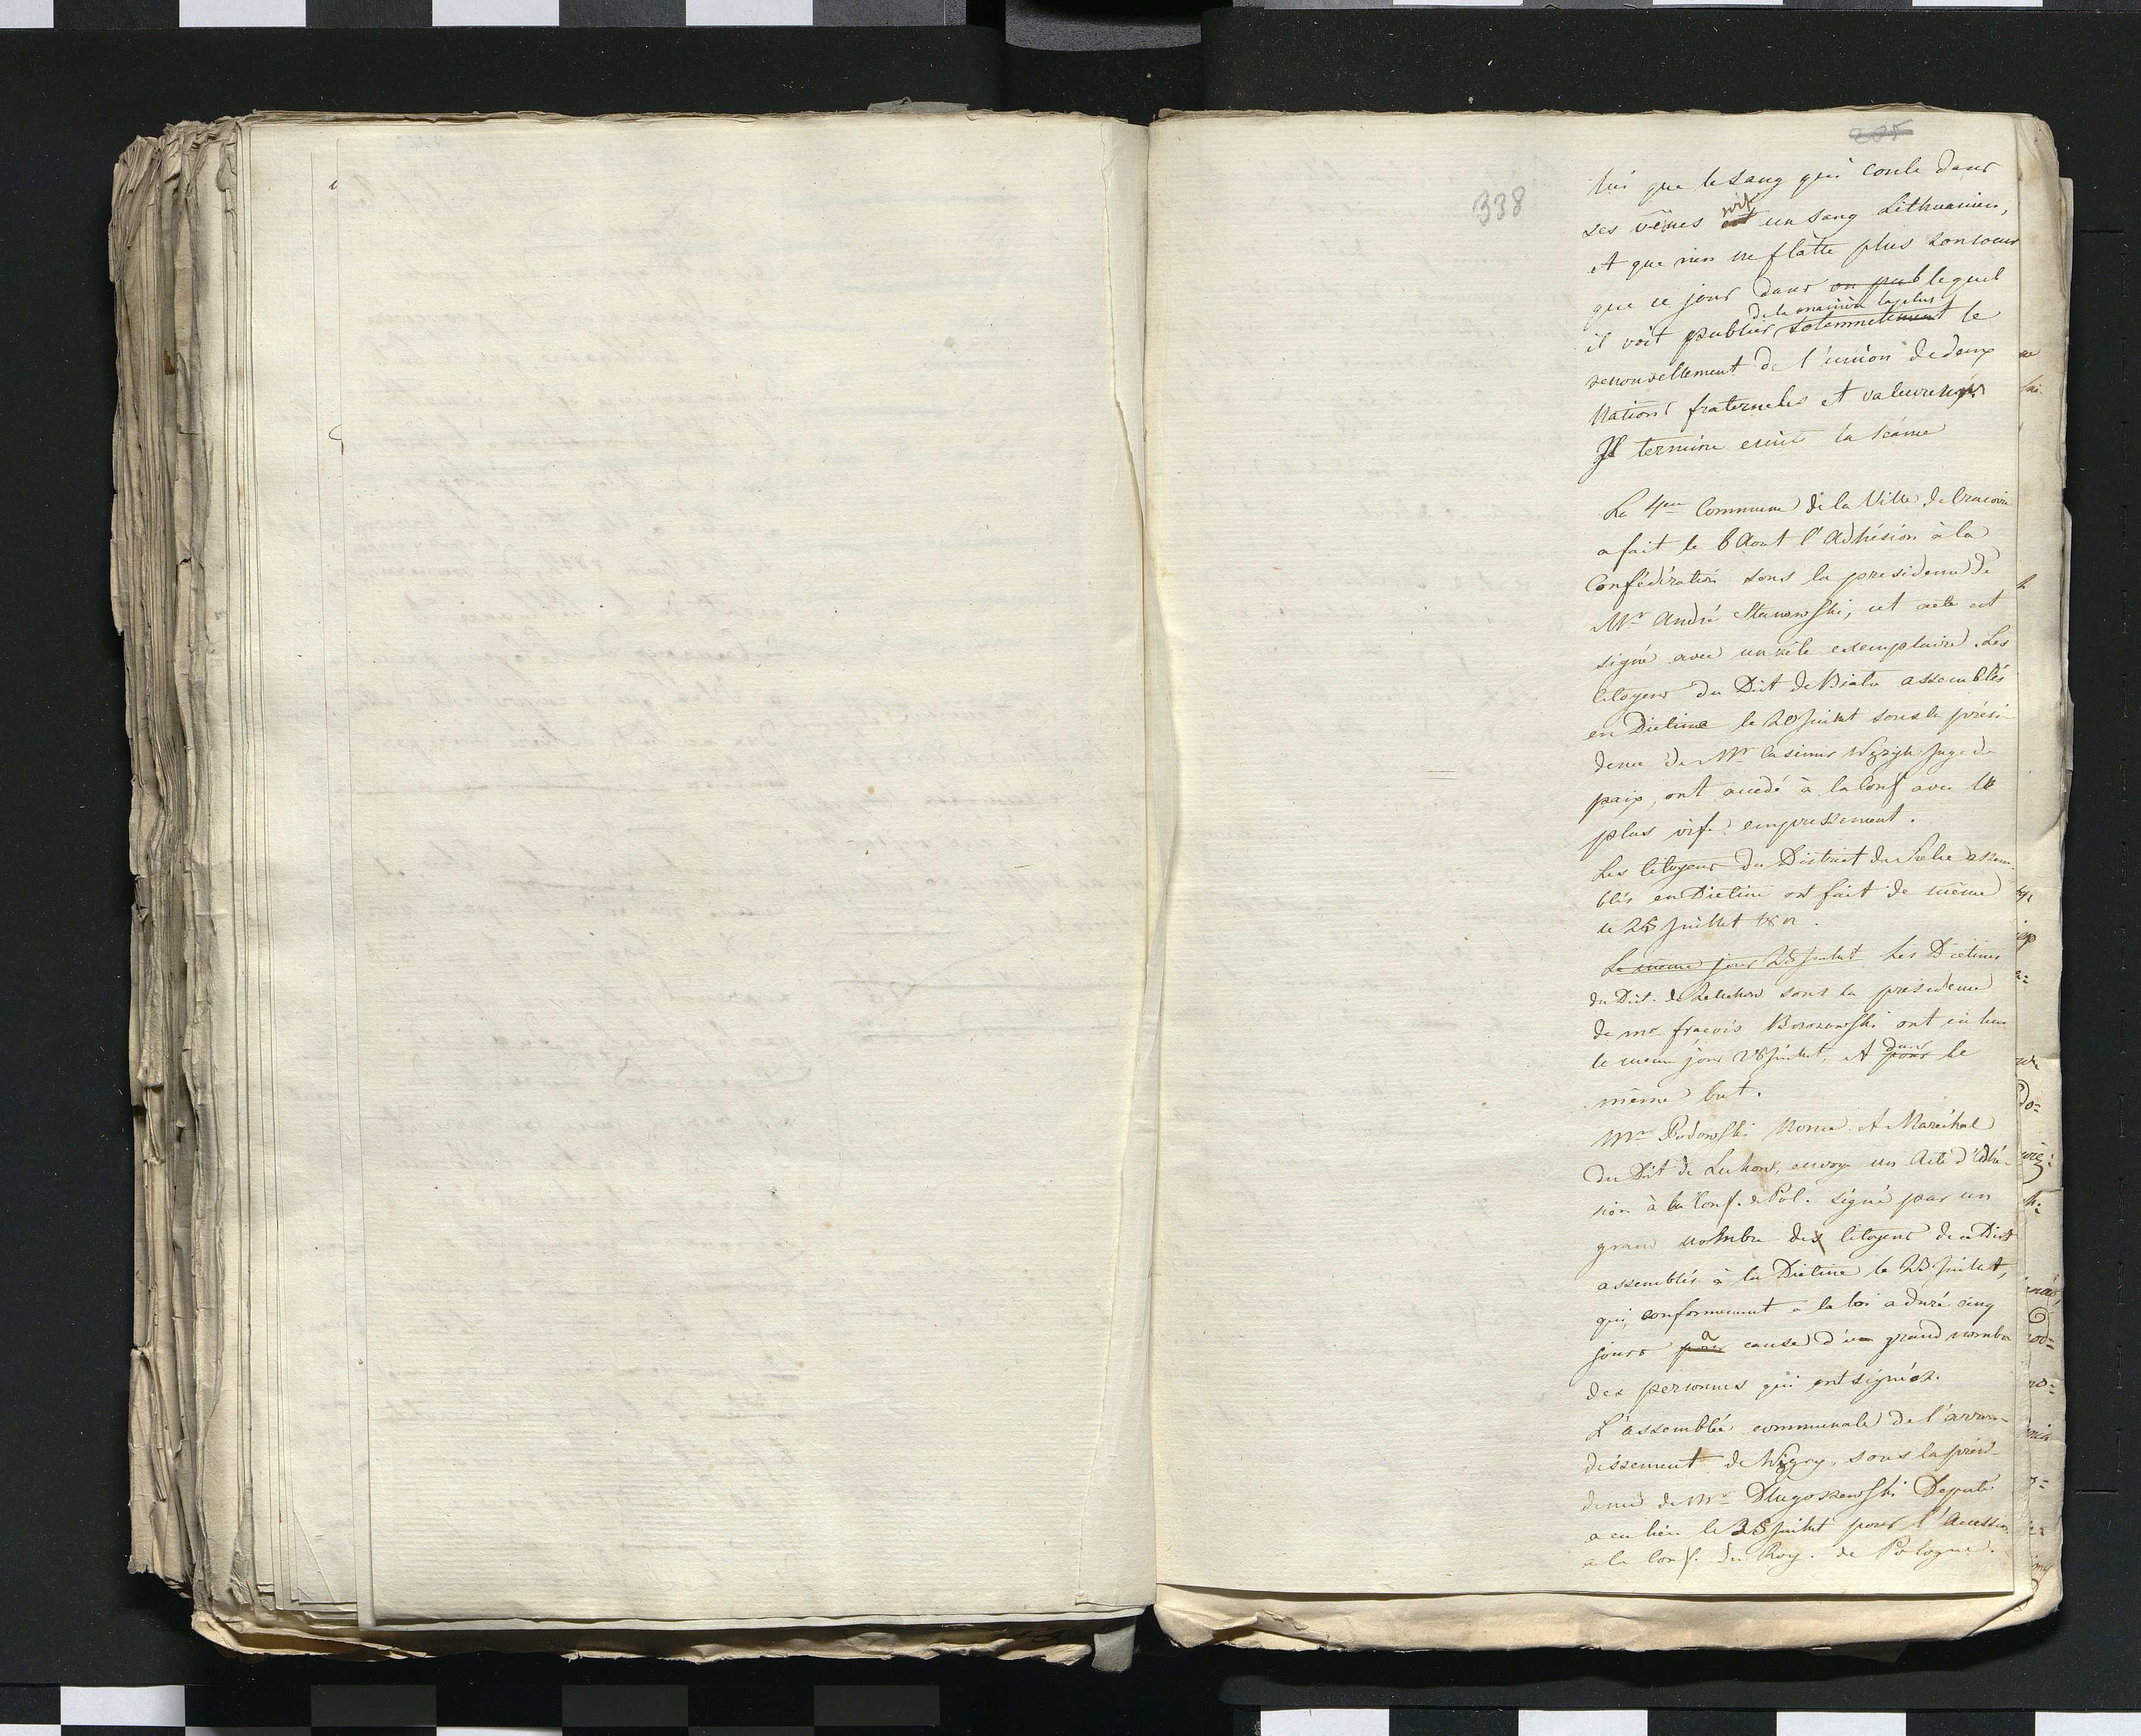 205
338
lui que le sang qui coule dans
ses veines soit un sang Lithuanien,
et que rien ne flatte plus son coeur
que ce jour dans on peut lequel
de la manière la plus
il voit publier solemnellement le
renouvellement de l'union de deux
Nations fraternelles et valeureuses
Il termine ainsi la Séance
Le 4me Commune de la Ville de Cracovie
a fait le 6 Aout l'Adhésion à la
Confédération sous la presidence de
Mr André Stanowski, cet acte est
signé avec un zèle exemplaire. Les
Citoyens du Dist de Biala assemblés
en Dietine le 20 Juillet sous la prési-
dence de Mr Casimir Węzyk Juge de
paix, ont accedé à la Conf avec le
plus vif empressement.
Les Citoyens du District de assem-
blés en Dietine ont fait de même
le 25 Juillet
Le même jour 25 Juillet Les Dietines
du Dist. de Lelichow sous la présidence
de Mr françois ont eu lieu
le meme jour 25 Juillet, et dans pour le
même but.
Mr Nonce et Maréchal
du Dist de Lukow, envoye un Acte d'Adhé-
sion à la Conf. de Pol. signé par un
grand nombre des Citoyens de ce Dist
assemblés à la Dietine le 25 Juillet,
qui, conformement a la loi a duré cinq
jours pour a cause d'un grand nombre
des personnes qui ont signées.
L'assemblée communale de l'arron-
dissement de Wigry, sous la prési-
dence de Mr Dlugoszewski Deputé
a eu lieu le 25 Juillet pour l'Accession
a la Conf. du Roy. de Pologne.